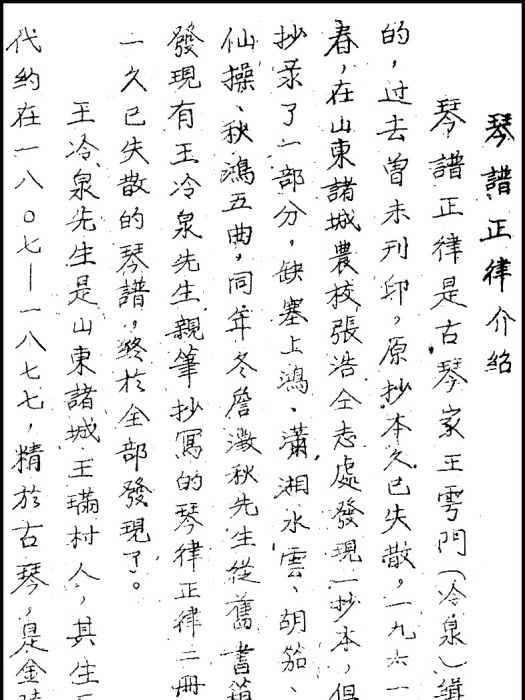 琴譜正律介紹
琴譜正律是古琴家王雩門(冷泉)緝
的,過去曾未刊印,原抄本久已失散。一九六一
春,在山東諸城農校張浩仝志處發現一抄本,但
抄录了一部分,缺塞上鴻、瀟湘水雲、胡笳、
仙操、秋鴻五曲,同年冬詹澂秋先生從舊書箱
發現有王冷泉先生親筆抄寫的琴律正律二冊
一久已失散的琴譜,終於全部發現了。
王冷泉先生是山東諸城王璊村人,其生
代約在一八〇七—一八七七,精於古琴,是金陵